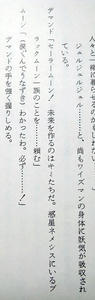 人々と一緒に暮らせるのかもしれない…
ジュルジュルジュル……と、尚もワイズマンの身体に妖気が吸収されている。
デマンド「セーラームーン！　未来を作るのはキミたちだ。惑星ネメシスにいるブラックムーン一族のことを……頼む」
ムーン「（涙ぐんでうなずき）わかったわ。必ず……！」
デマンドの手を強く握りしめる。